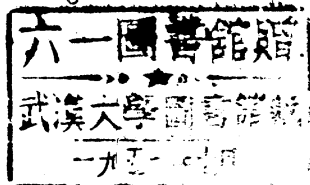 六一圖書館贈
武漢大學圖書館
一九五一